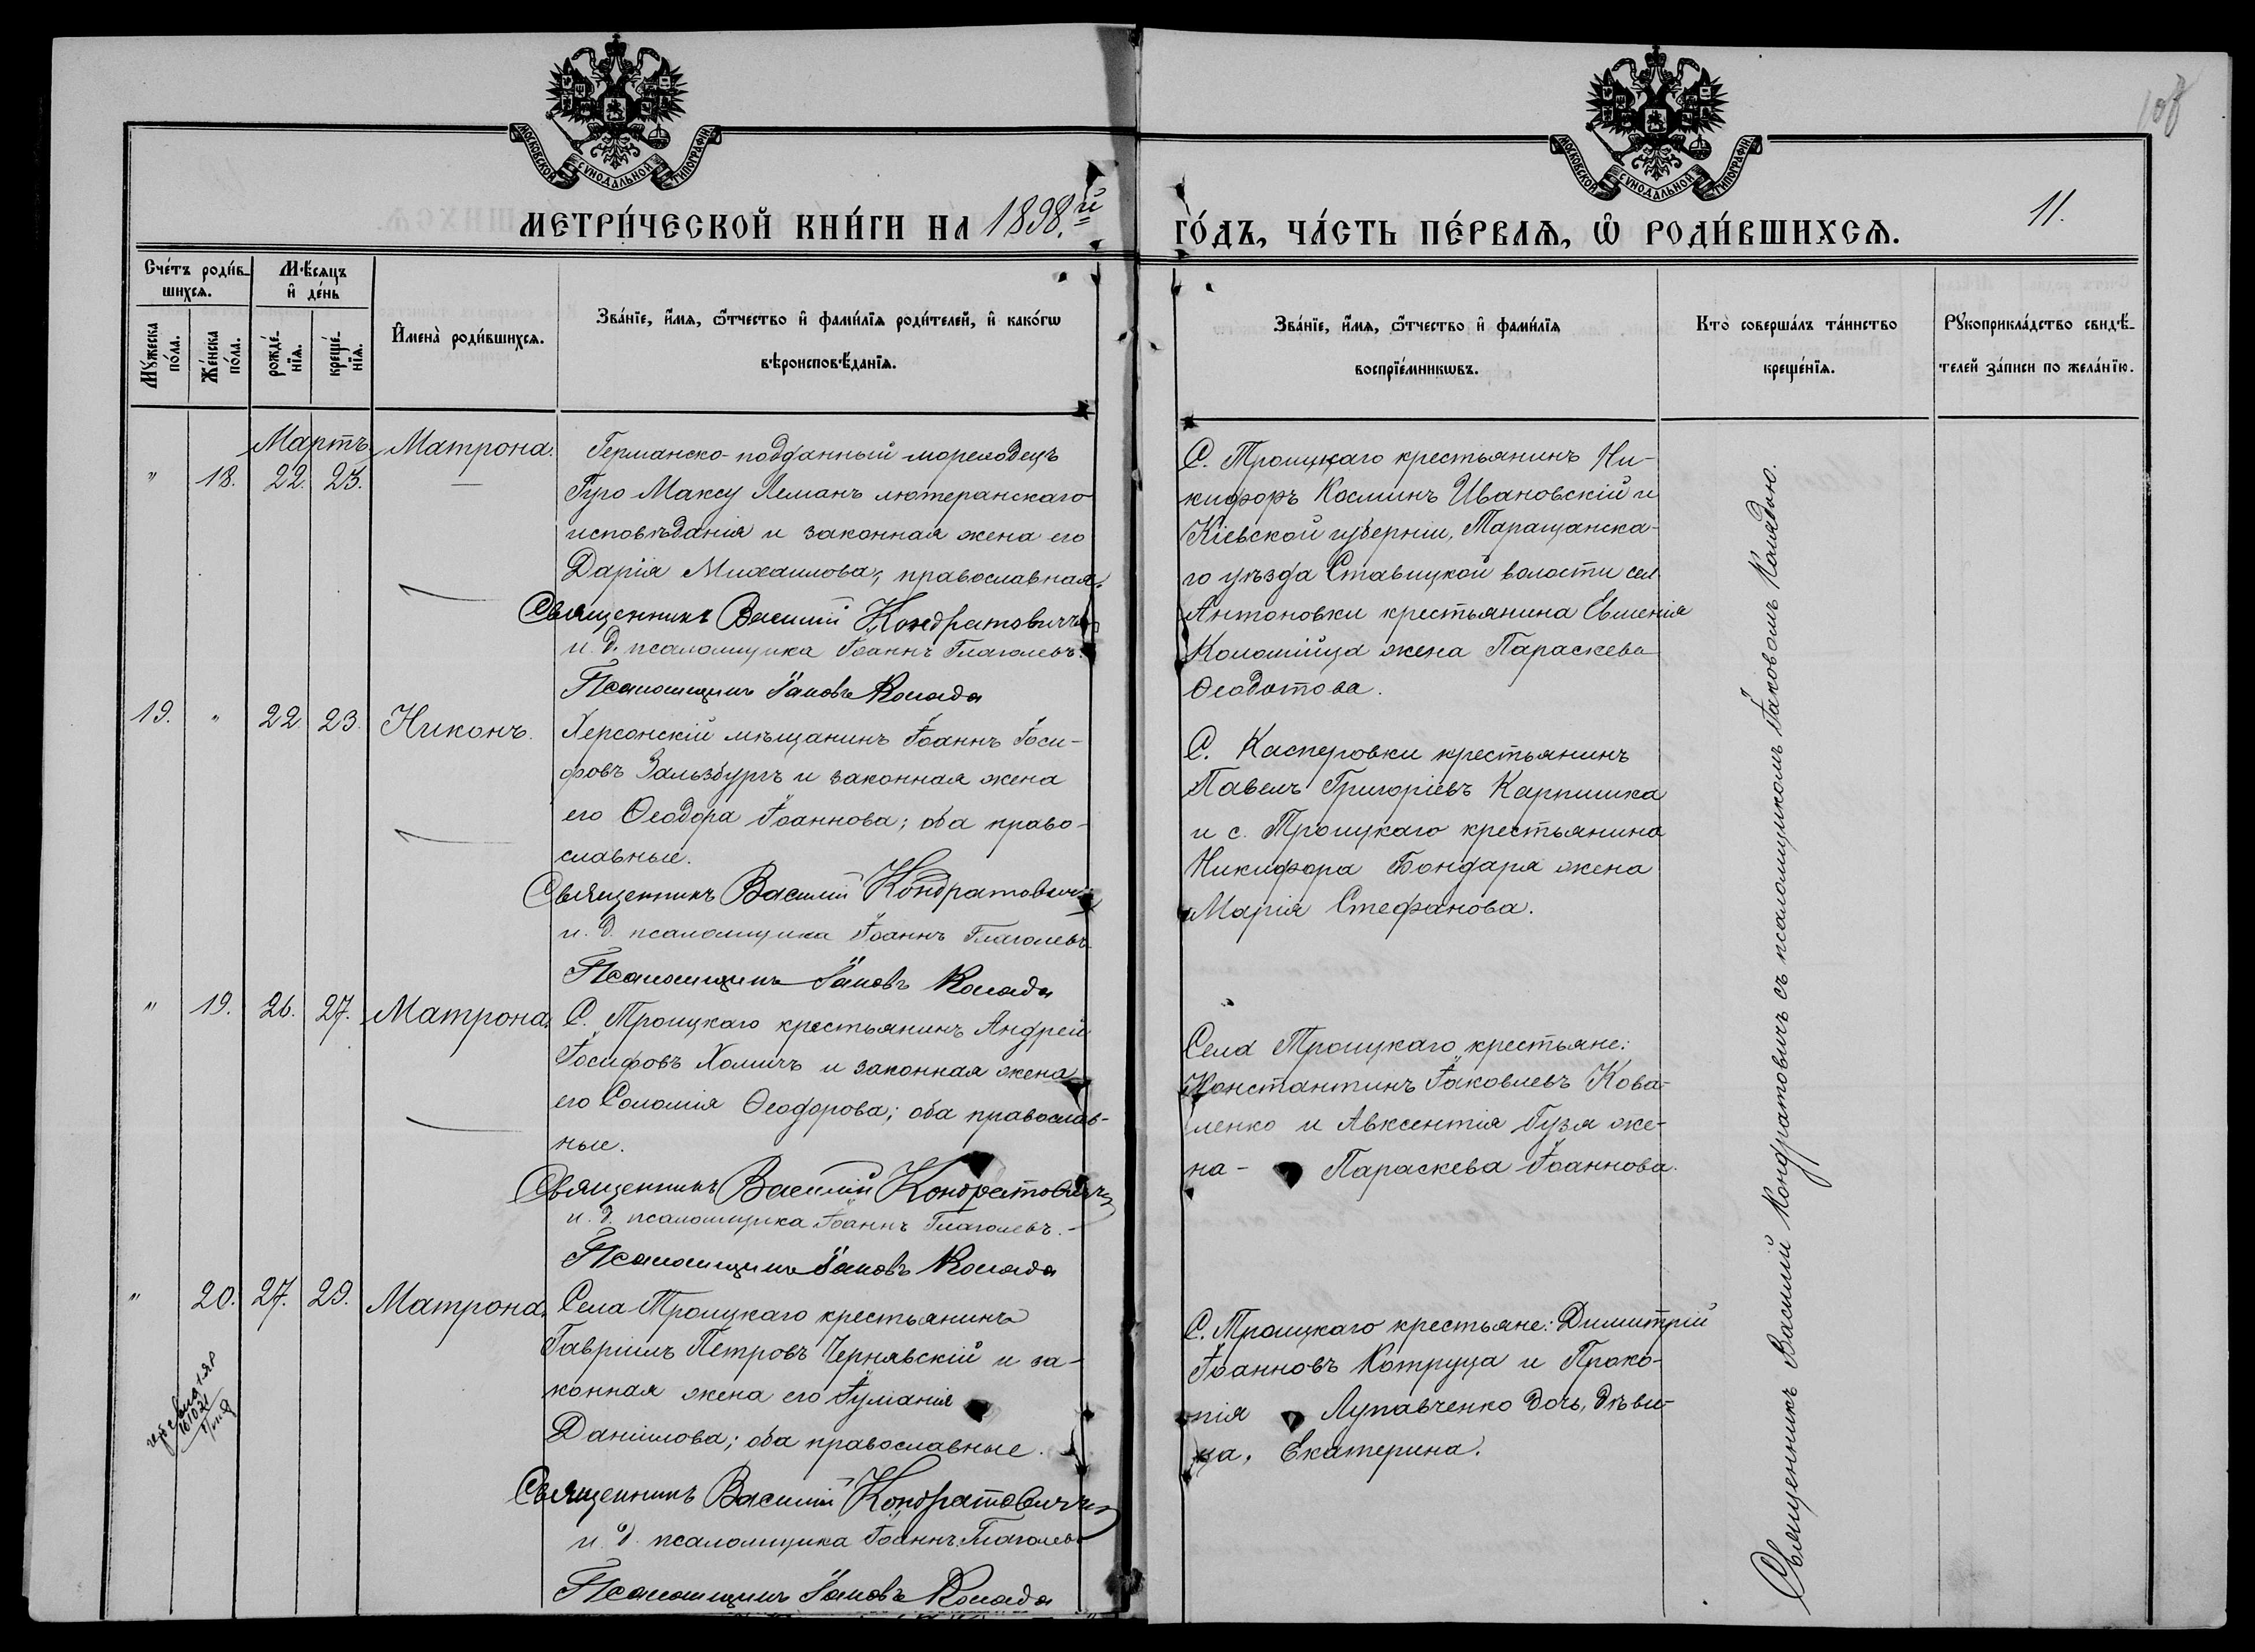 МОСКОВСКОЙ СѴНОДАЛЬНОЙ ТИПОГРАФІИ.
МОСКОВСКОЙ СѴНОДАЛЬНОЙ ТИПОГРАФІИ.
108
МЕТРИ́ЧЕСКОЙ КНИ́ГИ НА 1898.й
ГО́ДЪ, ЧА́СТЬ ПЕ́РВАѦ, Ѡ҆ РОДИ́ВШИХСѦ.
11.
Сче́тъ роди́в-
шихсѧ.
Мѣ́сѧцъ
и҆ де́нь
Мꙋ́жеска
по́ла.
Же́нска
по́ла.
рожде́-
нїѧ.
креще́-
нїѧ.
И҆мена̀ роди́вшихсѧ.
Зва́нїе, и҆́мѧ, ѻ҆́тчество и҆ фами́лїѧ роди́телей, и҆ како́гѡ
вѣроисповѣ́данїѧ.
Зва́нїе, и҆́мѧ, ѻ҆́тчество и҆ фами́лїѧ
воспрїе́мникѡвъ.
Кто̀ соверша́лъ та́инство
креще́нїѧ.
Рꙋкоприкла́дство свидѣ́-
телей за́писи по жела́нїю.
Мартъ
" 18. 22. 23.
Матрона.
Германско-подданный мореходецъ
Гуго Максу Леманъ лютеранскаго
исповѣданія и законная жена его
Дарія Михаилова, православная.
Священникъ Василій Кондратовичъ
и. д. псаломщика Іоаннъ Глаголевъ.
Псаломщикъ Іаковъ Коляда
С. Троицкаго крестьянинъ Ни-
кифоръ Косминъ Ивановскій и
Кіевской губерніи, Таращанска-
го уѣзда Ставицкой волости сел.
Антоновки крестьянина Евменія
Коломійца жена Параскева
Ѳеодотова.
19. " 22. 23. Никонъ.
Херсонскій мѣщанинъ Іоаннъ Іоси-
фовъ Зальзбургъ и законная жена
его Ѳеодора Іоаннова; оба право-
славные.
Священникъ Василій Кондратовичъ
и. д. псаломщика Іоаннъ Глаголевъ
Псаломщикъ Іаковъ Коляда
С. Касперовки крестьянинъ
Павелъ Григоріевъ Карпишка
и с. Троицкаго крестьянина
Никифора Бондаря жена
Марія Стефанова.
" 19. 26. 27. Матрона.
С. Троицкаго крестьянинъ Андрей
Іосифовъ Хомичъ и законная жена
его Соломія Ѳеодорова; оба православ-
ные.
Священникъ Василій Кондратовичъ
и. д. псаломщика Іоаннъ Глаголевъ.
Псаломщикъ Іаковъ Коляда
Села Троицкаго крестьяне:
Константинъ Іаковлевъ Кова-
ленко и Авксентія Гузя же-
на - Параскева Іоаннова.
" 20. 27. 29. Матрона.
Села Троицкаго крестьянинъ
Гавріилъ Петровъ Чернявскій и за-
конная жена его Іуліанія
Даніилова; оба православные.
Священникъ Василій Кондратовичъ
и. д. псаломщика Іоаннъ Глаголевъ
Псаломщикъ Іаковъ Коляда
С. Троицкаго крестьяне: Димитрій
Іоанновъ Котруца и Проко-
пія Лупавченко дочь, дѣви-
ца, Екатерина.
Священникъ Василій Кондратовичъ съ псаломщикомъ Іаковомъ Колядою.